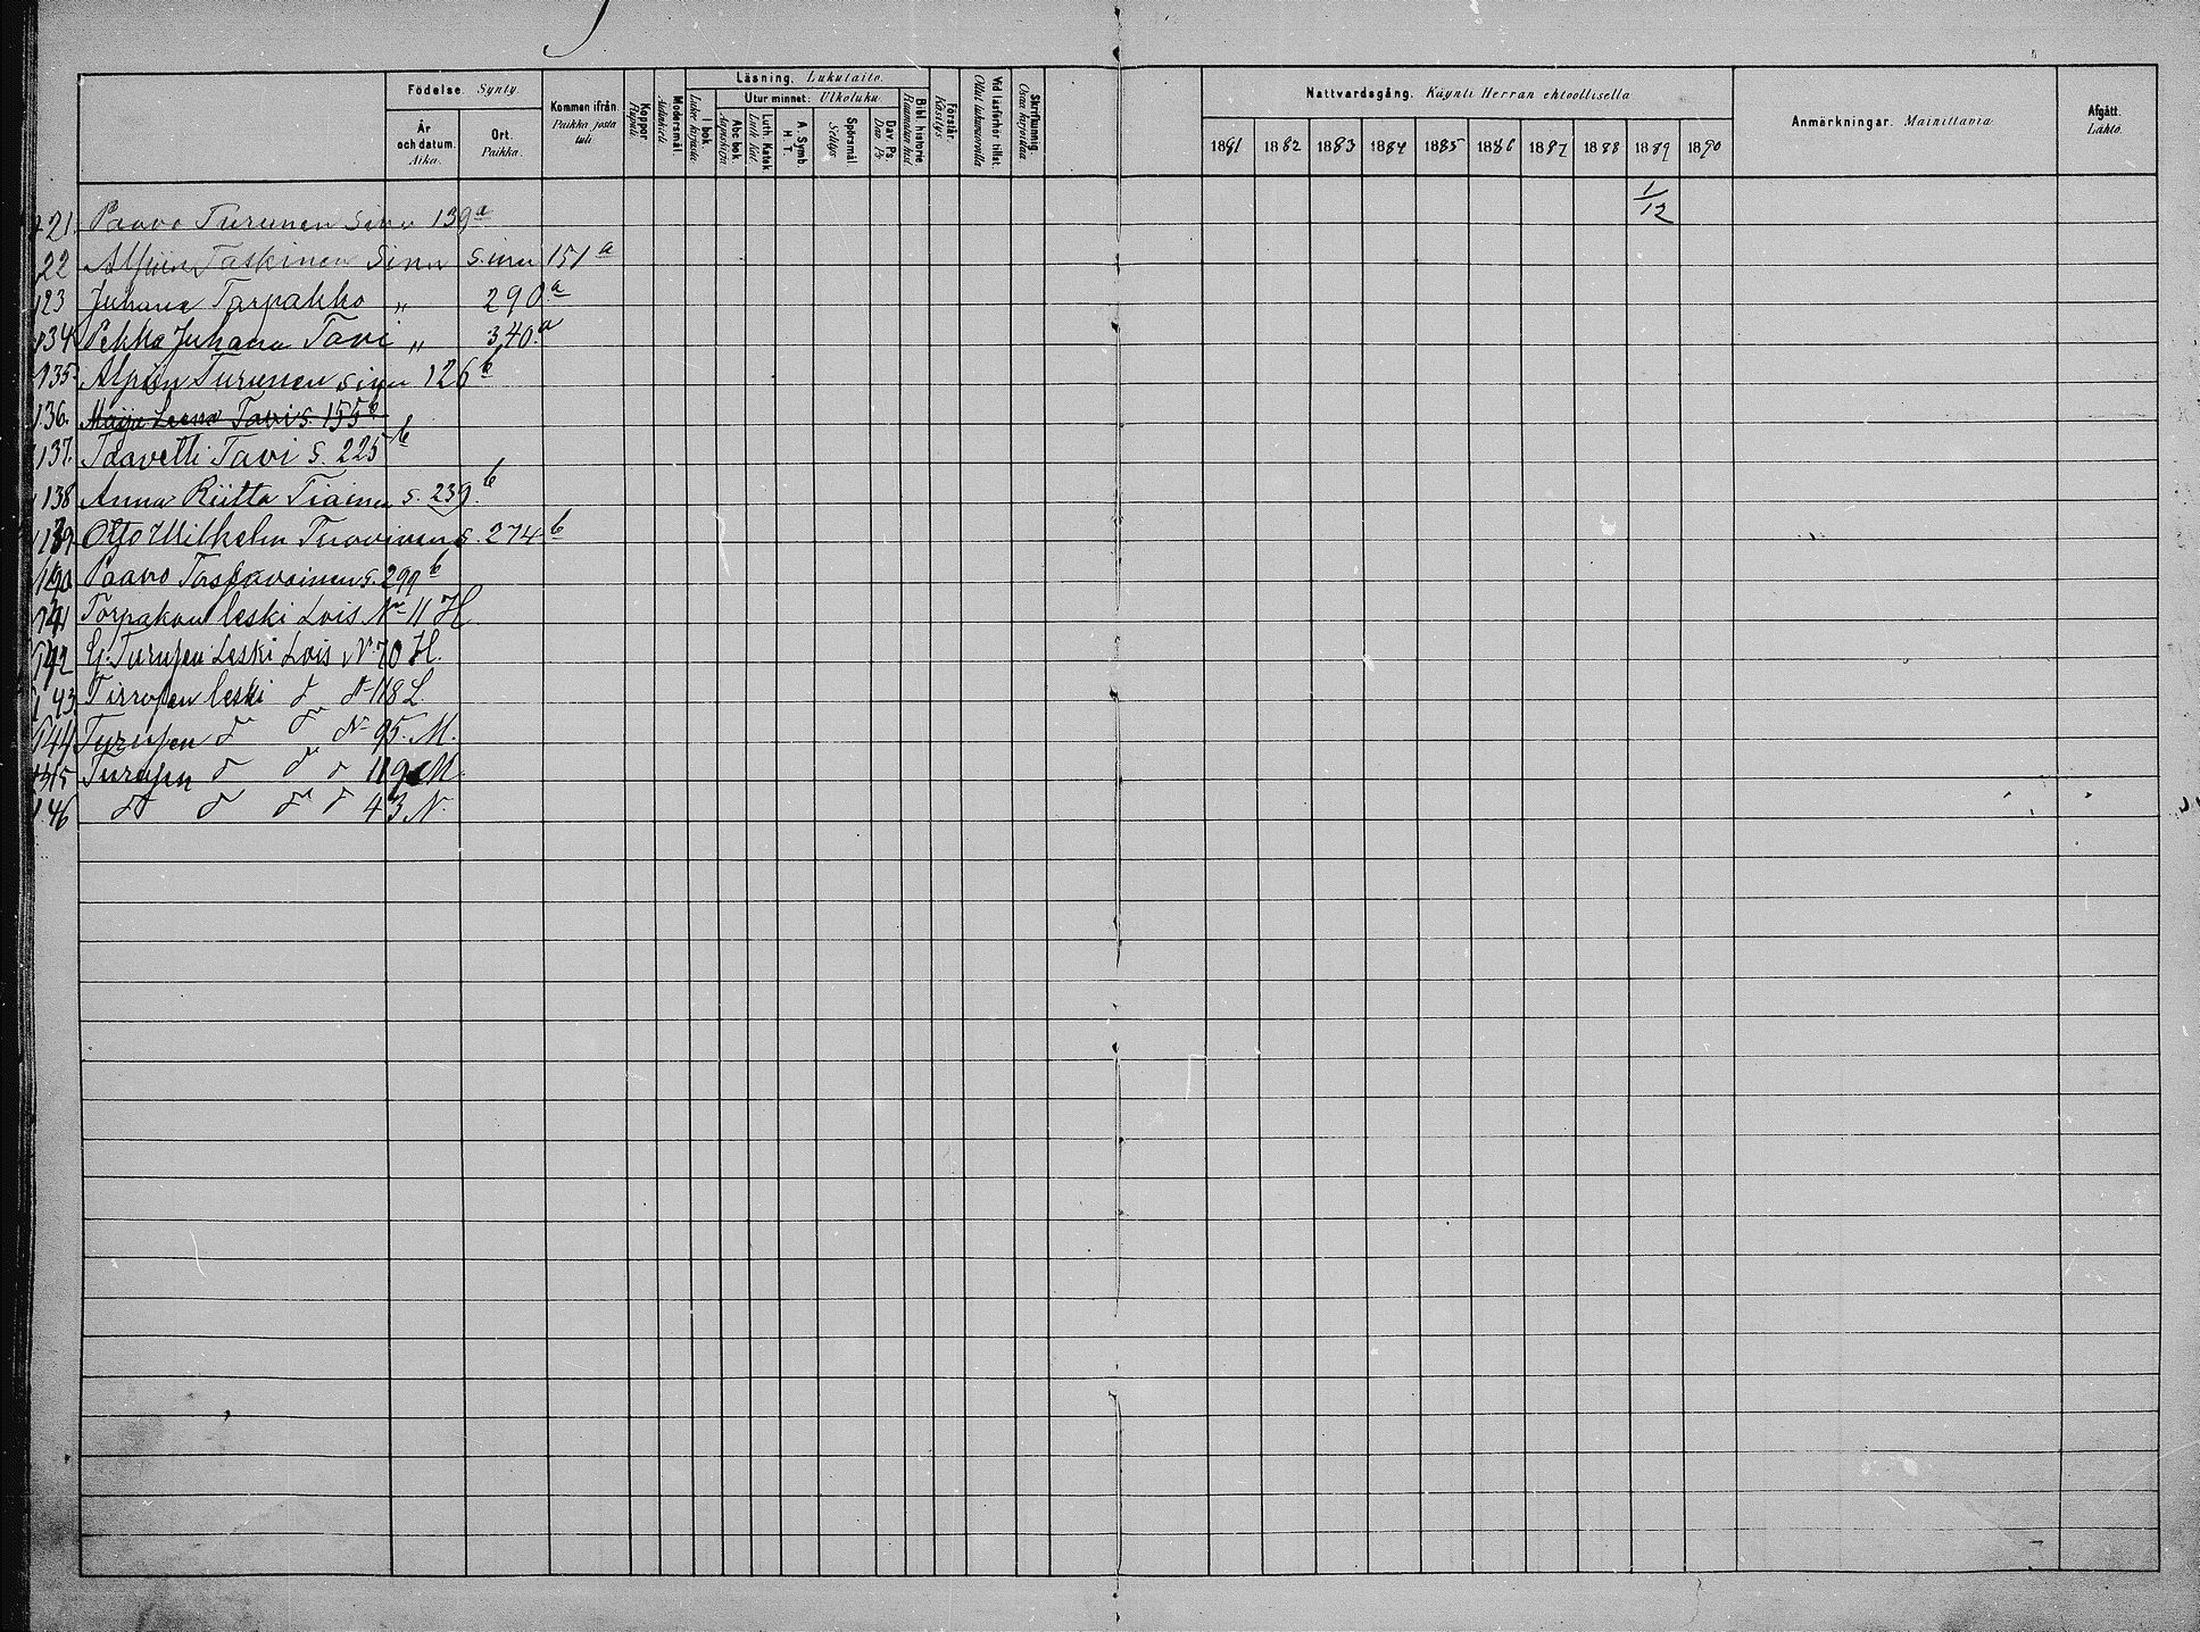 Födelse. Synty.
År och datum. Aika.
Ort. Paikka.
Kommen ifrån. Paikka josta tuli
Koppor Rupuli.
Modersmål. Äidinkieli
Läsning. Lukutaito.
I bok. Lukee kirjasta
Utur minnet: Ulkoluku.
Abc bok. Aapiskirja
Luth. Katek. Luth. Kat.
A. Symb. H. T.
Spörsmål. Selitys
Dav. Ps. Dav. Ps.
Bibl. historie. Raamatun hist.
Förstår. Käsitys
Vid läsförhör tillst. Ollut lukuvuorolla
Skrifkunnig. Osaa kirjoittaa
Nattvardsgång. Käynti Herran ehtoollisella
1881 1882 1883 1884 1885 1886 1887 1888 1889 1890
Anmärkningar. Mainittavia.
Afgått. Lähtö.
21. Paavo Turunen sivu 139a 1/12
22 Taskinen Sivu sivu 151a
23 Juhana Torpakko „ 290a
34 Pekka Juhana Tavi „ 340.a
135. Turunen sivu 126b
136. Maija Leena Tavi s. 155b
137. Taavetti Tavi s. 225b
138 Anna Riitta Tiainen s. 239.b
139 Otto Wilhelm Tuovinen s. 274b
Paavo s. 299b
141 Torpakon leski Lois No 11 H
142 G. Turusen Leski Lois No 70 H.
143 leski do No 118 L.
144 Turusen do do No 95. M.
145 Turusen do do do 119 M.
146 do do do do 43 N.